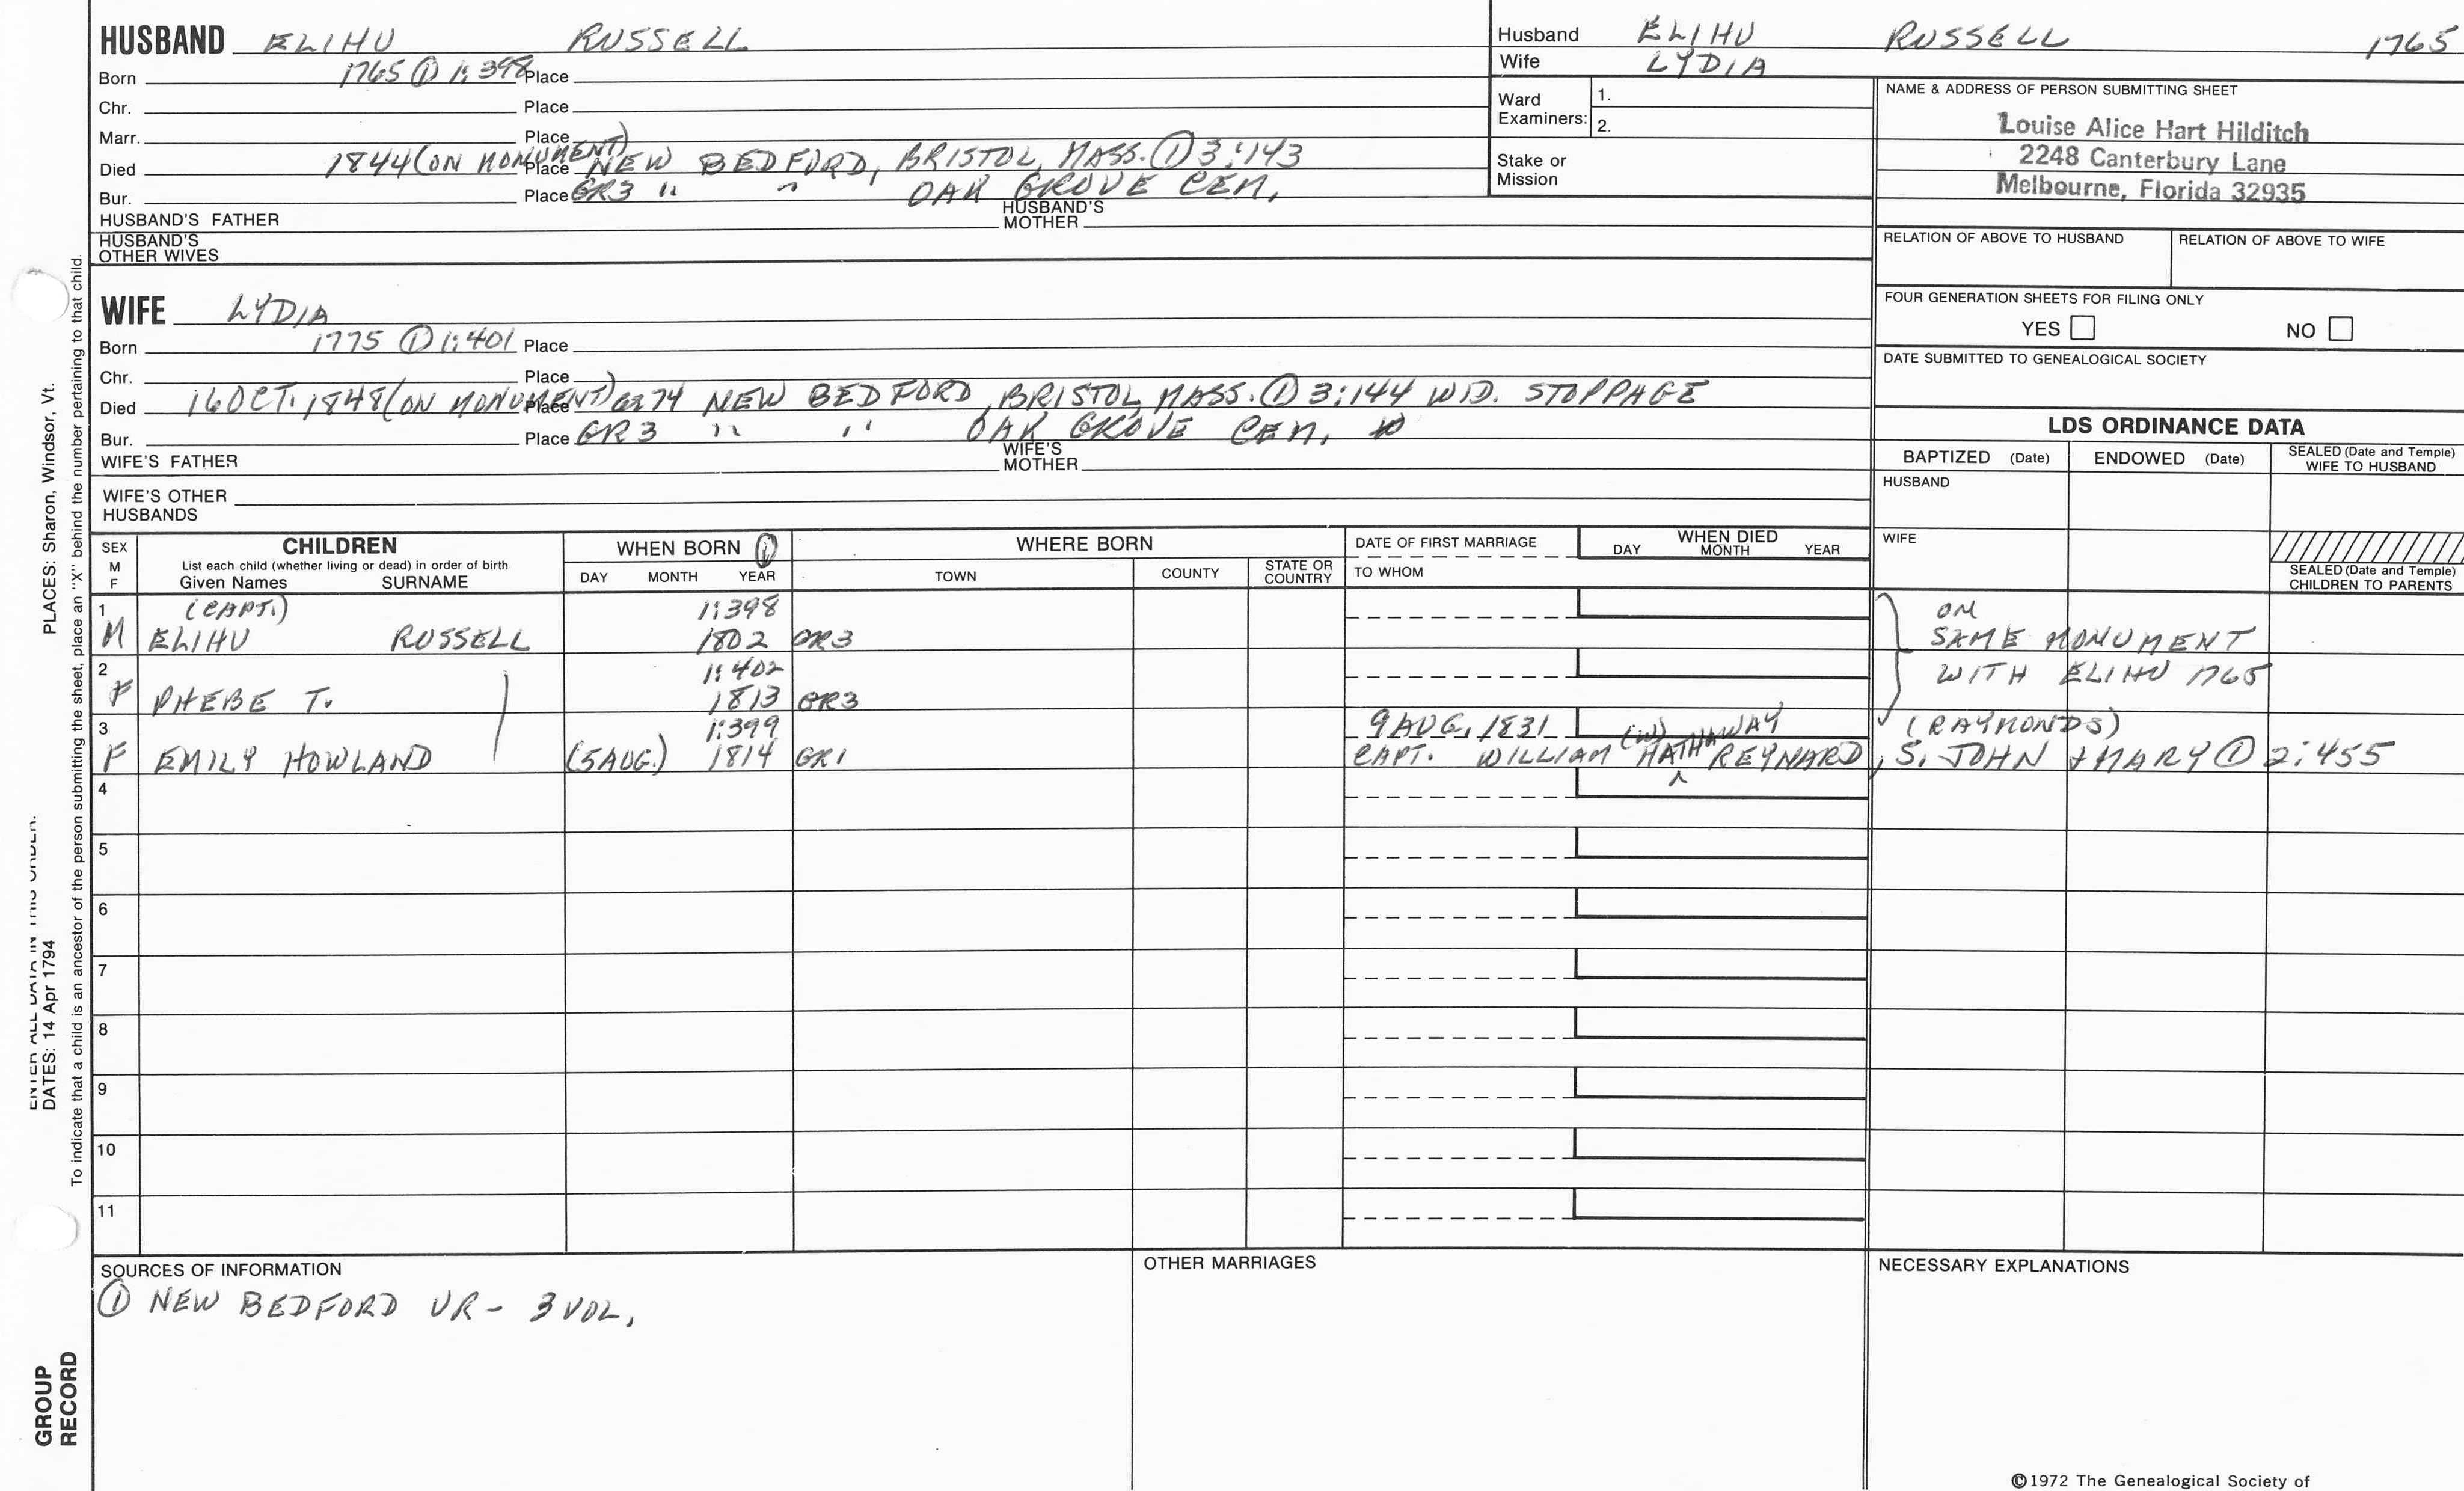 HUSBAND ELIHU RUSSELL
Born 1765 ① 1:398 Place
Chr. Place
Marr. Place
Died 1844 (ON MONUMENT) Place NEW BEDFORD, BRISTOL, MASS. ① 3:143
Bur. Place GR3 " " OAK GROVE CEM.
HUSBAND'S FATHER HUSBAND'S MOTHER
HUSBAND'S OTHER WIVES
Husband ELIHU RUSSELL 1765
Wife LYDIA
Ward Examiners: 1.
2.
Stake or Mission
NAME & ADDRESS OF PERSON SUBMITTING SHEET
Louise Alice Hart Hilditch
2248 Canterbury Lane
Melbourne, Florida 32935
RELATION OF ABOVE TO HUSBAND RELATION OF ABOVE TO WIFE
FOUR GENERATION SHEETS FOR FILING ONLY
YES NO
DATE SUBMITTED TO GENEALOGICAL SOCIETY
WIFE LYDIA
Born 1775 ① 1:401 Place
Chr. Place
Died 16 OCT. 1848 (ON MONUMENT) Place 74 NEW BEDFORD, BRISTOL, MASS. ① 3:144 WID. STOPPAGE
Bur. Place GR3 " " OAK GROVE CEM.
WIFE'S FATHER WIFE'S MOTHER
WIFE'S OTHER HUSBANDS
LDS ORDINANCE DATA
BAPTIZED (Date) ENDOWED (Date) SEALED (Date and Temple) WIFE TO HUSBAND
HUSBAND
WIFE
SEALED (Date and Temple) CHILDREN TO PARENTS
SEX M F
CHILDREN
List each child (whether living or dead) in order of birth
Given Names SURNAME
WHEN BORN ①
DAY MONTH YEAR
WHERE BORN
TOWN COUNTY STATE OR COUNTRY
DATE OF FIRST MARRIAGE
TO WHOM
WHEN DIED
DAY MONTH YEAR
1 (CAPT.) 1:398 ON
M ELIHU RUSSELL 1802 GR3 SAME MONUMENT
2 1:402 WITH ELIHU 1765
F PHEBE T. 1813 GR3
3 1:399 9 AUG, 1831 (W) HATHAWAY (RAYMONDS)
F EMILY HOWLAND (5 AUG.) 1814 GR1 CAPT. WILLIAM REYNARD, S. JOHN + MARY ① 2:455
4
5
6
7
8
9
10
11
SOURCES OF INFORMATION
① NEW BEDFORD VR - 3 VOL.
OTHER MARRIAGES
NECESSARY EXPLANATIONS
©1972 The Genealogical Society of
PLACES: Sharon, Windsor, Vt.
ENTER ALL DATA IN THIS ORDER:
DATES: 14 Apr 1794
To indicate that a child is an ancestor of the person submitting the sheet, place an "X" behind the number pertaining to that child.
GROUP
RECORD